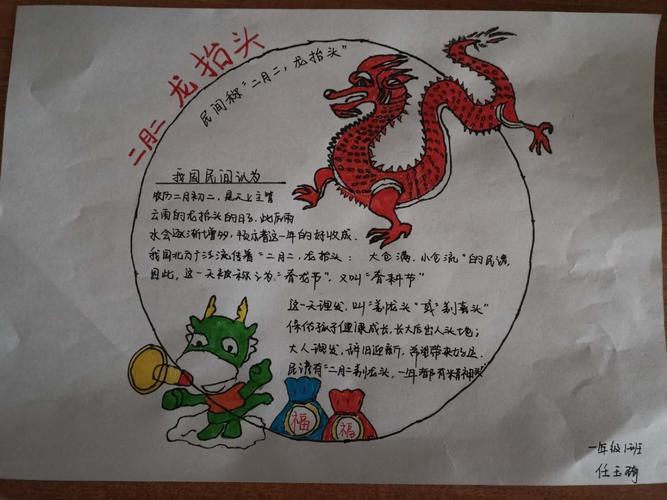 二月二 龙抬头
民间称“二月二，龙抬头”
我国民间认为
农历二月初二，是天上主管
云雨的龙抬头的日子，此后雨
水会逐渐增多，预示着这一年的好收成．
我国北方广泛流传着“二月二，龙抬头： 大仓满，小仓流”的民谚，
因此，这一天被称之为“春龙节”，又叫“春耕节”
这一天理发，叫“剃龙头”或“剃喜头”
保佑孩子健康成长，长大后出人头地；
大人理发，辞旧迎新，希望带来好运．
民谚有“二月二剃龙头，一年都有精神头”
福
福
一年级 班
任玉